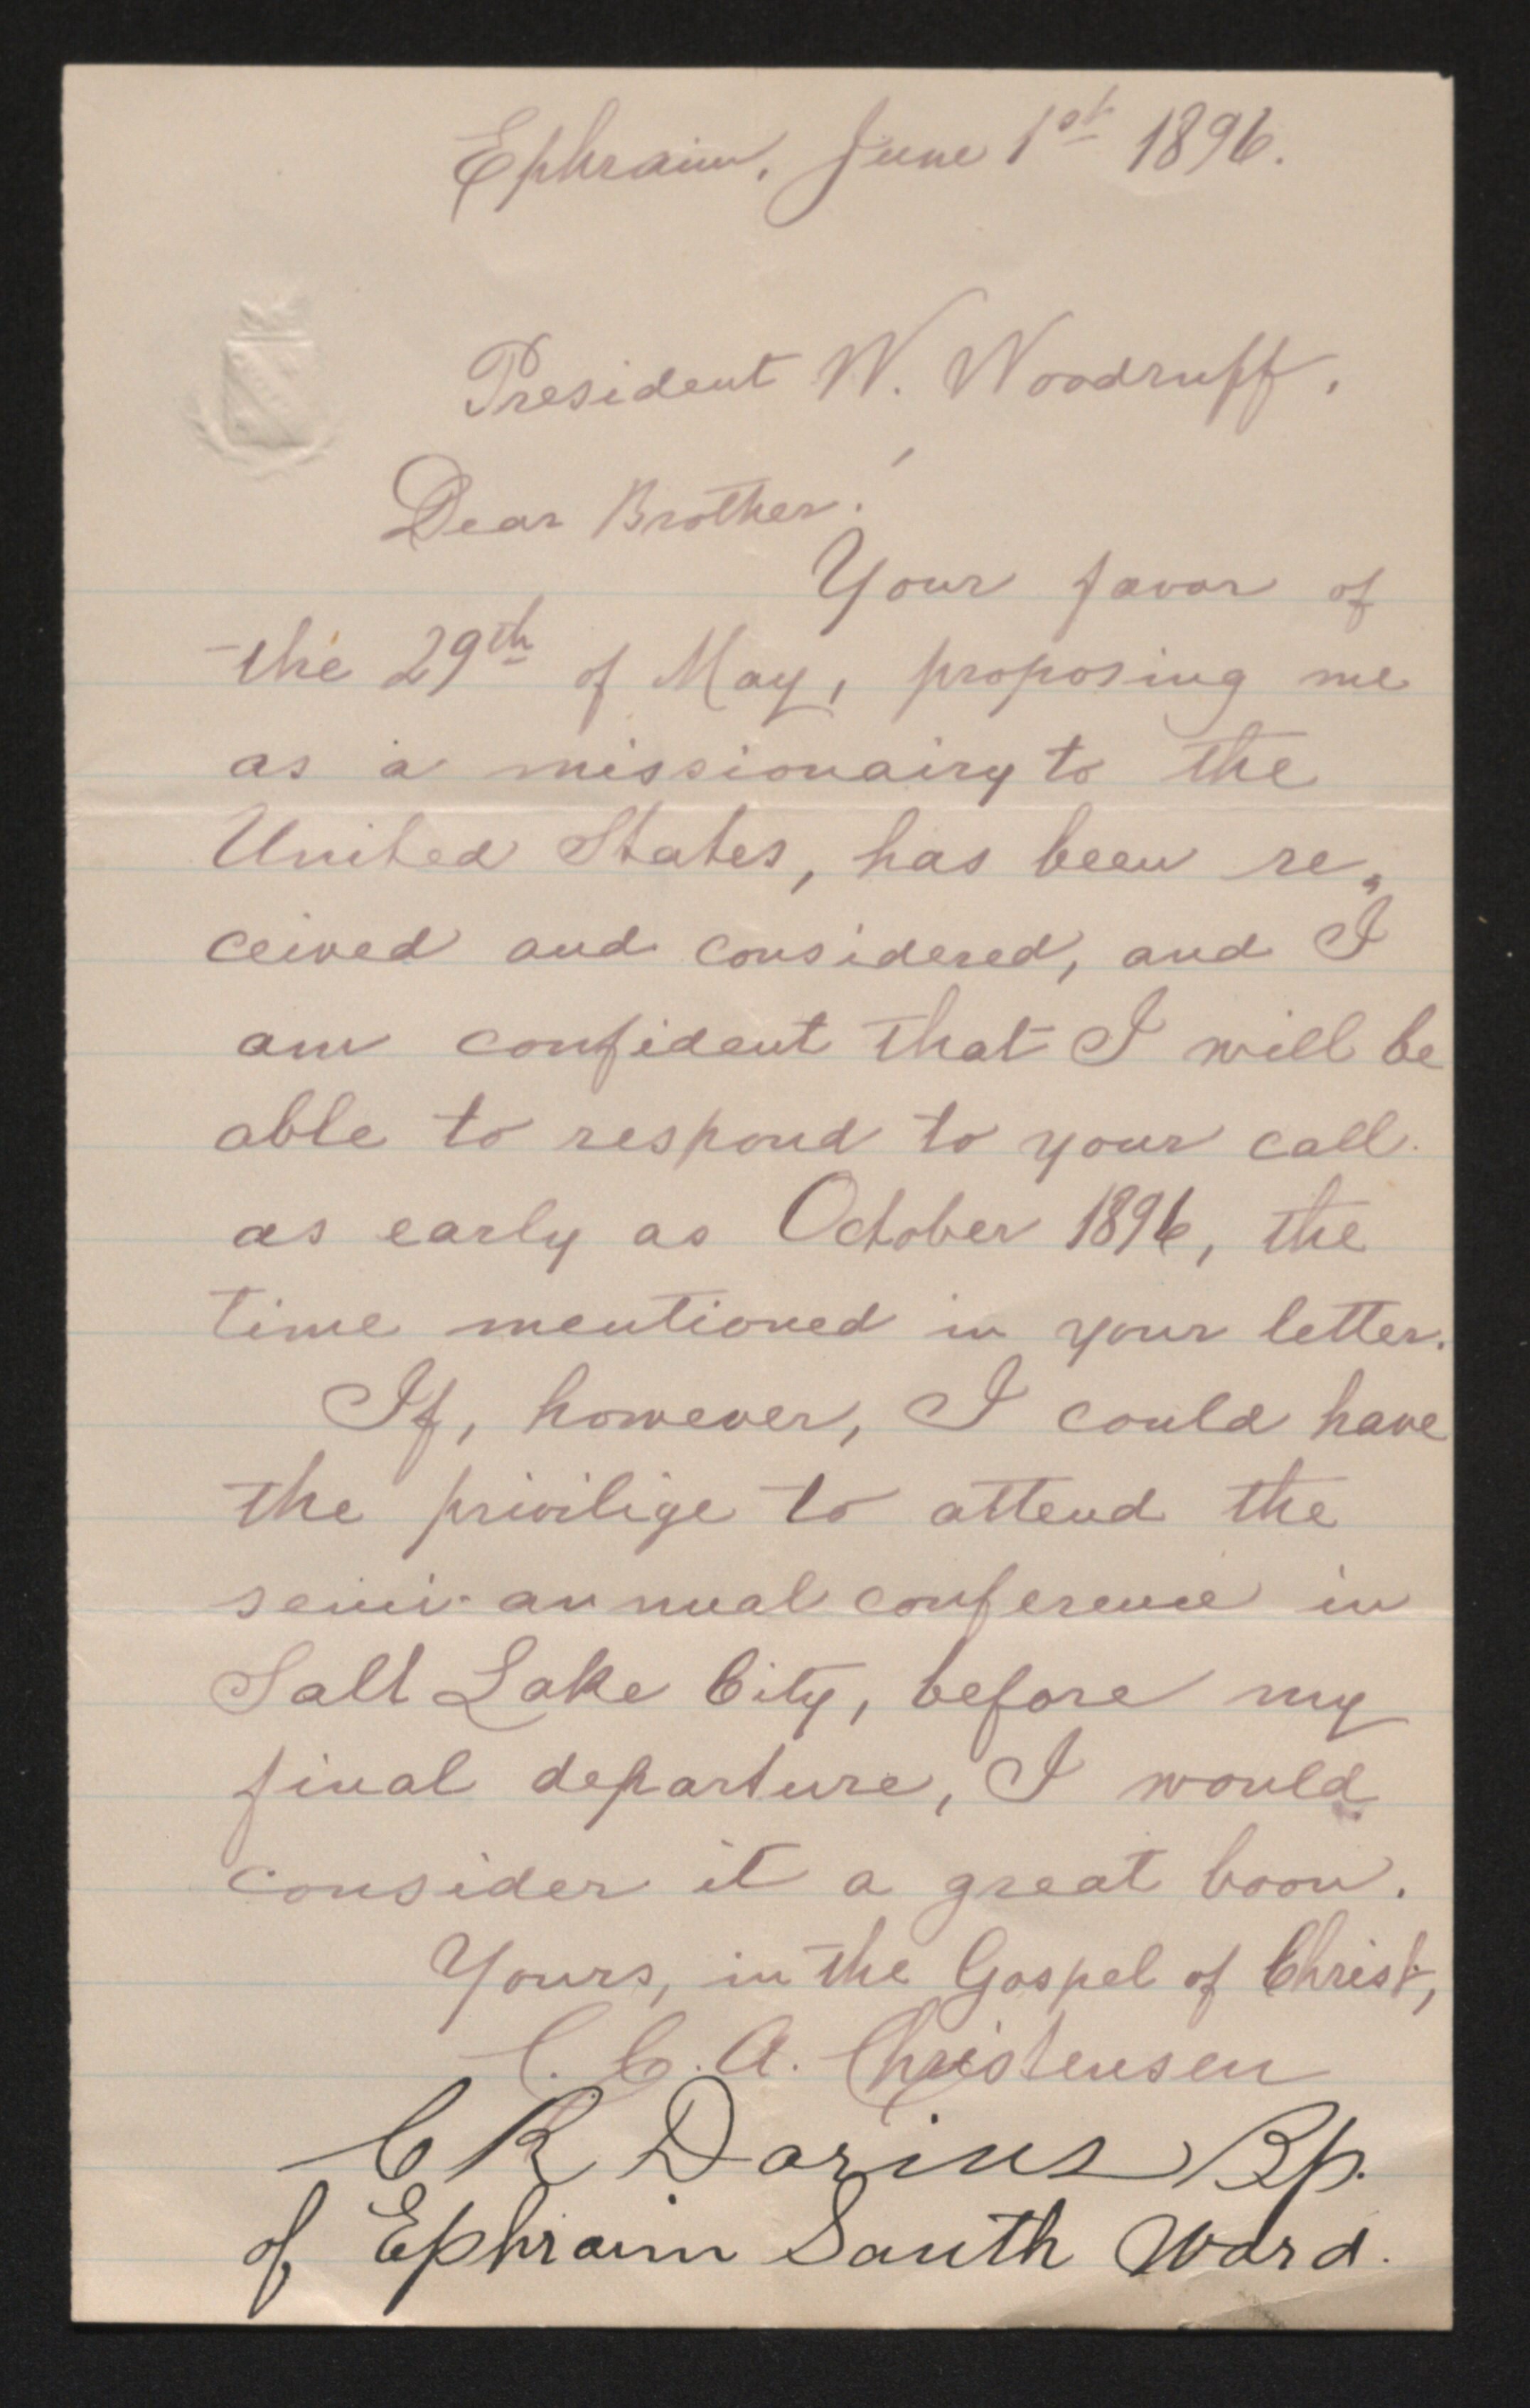 Ephraim, June 1st 1896.
President W. Woodruff,
Dear Brother!
Your favor of
the 29th of May, proposing me
as a missionairy to the
United States, has been re-
ceived and considered, and I
am confident that I will be
able to respond to your call
as early as October 1896, the
time mentioned in your letter.
If, however, I could have
the privilige to attend the
semi-annual conference in
Salt Lake City, before my
final departure, I would
consider it a great boon.
Yours, in the Gospel of Christ,
C. C. A. Christensen
C R Dorius Bp.
of Ephraim South Ward.